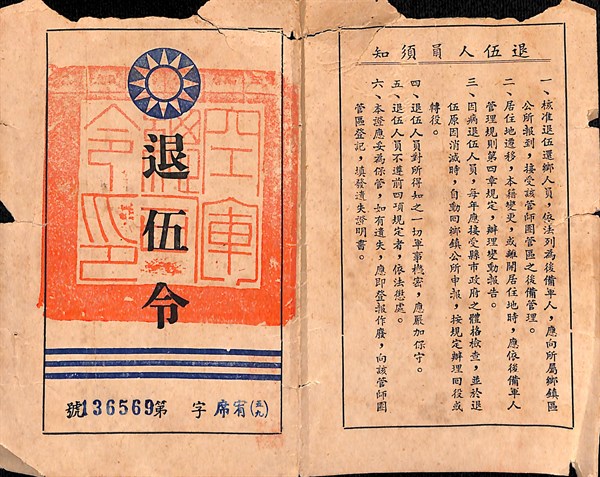 退伍令
(五九)宥席字第136569號
退伍人員須知
一、核准退伍還鄉人員，依法列為後備軍人，應向所屬鄉鎮區
公所報到，接受該管師團管區之後備管理。
二、居住地遷移，本籍變更，或離開居住地時，應依後備軍人
管理規則第四章規定，辦理變動報告。
三、因病退伍人員，每年應接受縣市政府之體格檢查，並於退
伍原因消滅時，自動向鄉鎮公所申報，按規定辦理回役或
轉役。
四、退伍人員對所得知之一切軍事機密，應嚴加保守。
五、退伍人員不遵前四項規定者，依法懲處。
六、本證應妥為保管，如有遺失，應即登報作廢，向該管師團
管區登記，填發遺失證明書。